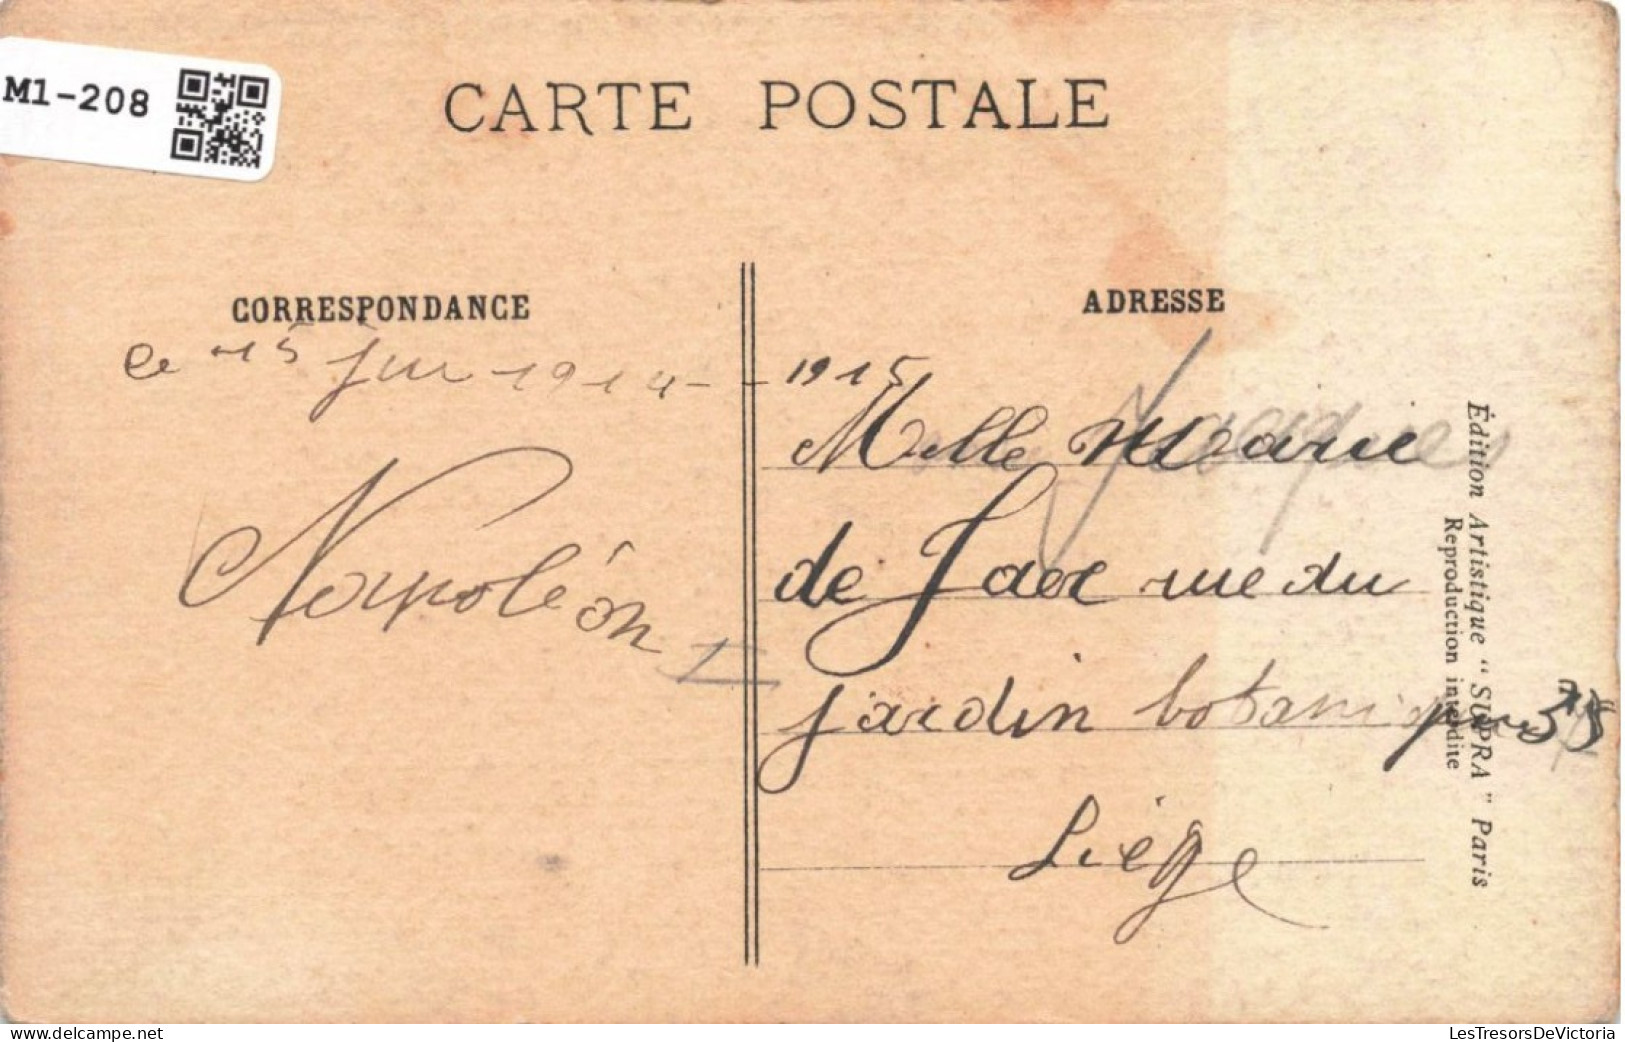 M1-208
CARTE POSTALE
CORRESPONDANCE
ADRESSE
le 15 Jui 1914 - 1915
Napoléon I
Melle Marie
de Jaer rue du
jardin botanique
Liége
Édition Artistique “ SUPRA ” Paris
Reproduction interdite
delcampe.net
LesTresorsDeVictoria